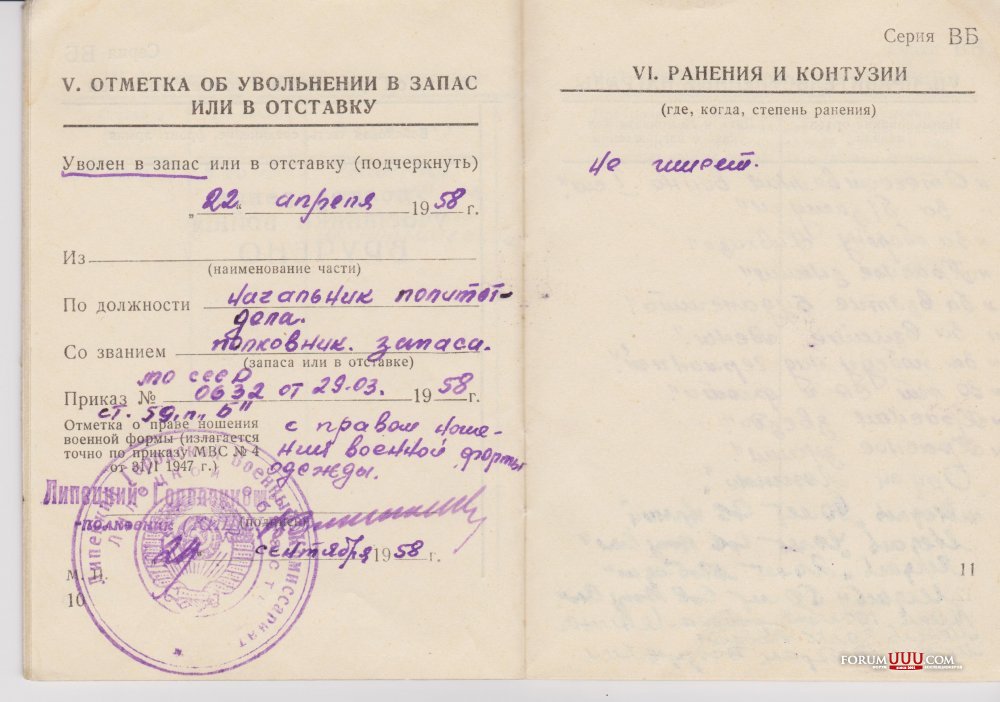 V. ОТМЕТКА ОБ УВОЛЬНЕНИИ В ЗАПАС
ИЛИ В ОТСТАВКУ
Уволен в запас или в отставку (подчеркнуть)
„22“ апреля 1958 г.
Из
(наименование части)
По должности начальник политот-
дела.
Со званием полковник. запаса.
(запаса или в отставке)
МО СССР
Приказ № 0632 от 29.03. 1958 г.
ст. 59, п. „б“
Отметка о праве ношения
военной формы (излагается
точно по приказу МВС № 4
от 3/II 1947 г.)
с правом ноше-
ния военной формы
одежды.
Липецкий Горвоенком
-полковник
(подпись)
сентября 1958 г.
М. П.
Липецкий Городской Военный Комиссариат
Липецкой области
10
Серия ВБ
VI. РАНЕНИЯ И КОНТУЗИИ
(где, когда, степень ранения)
Не имеет.
11
FORUM UUU.COM